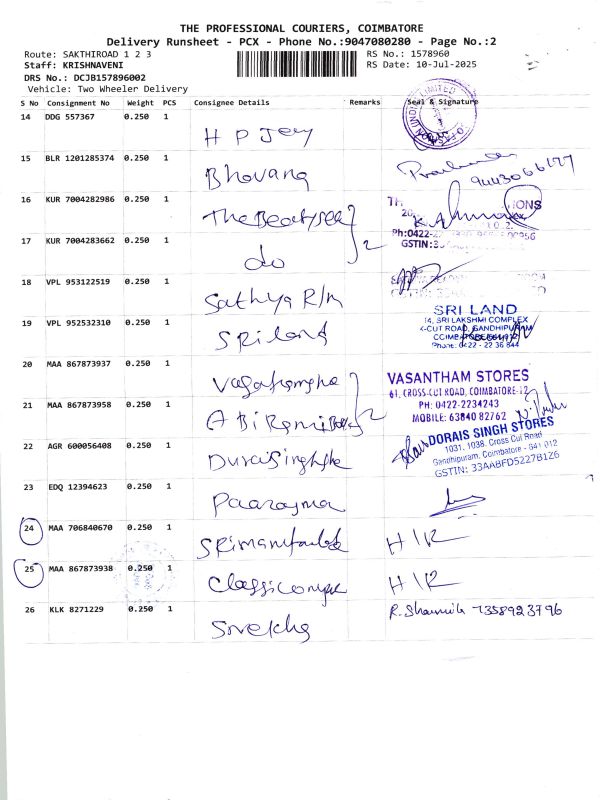 THE PROFESSIONAL COURIERS, COIMBATORE
Delivery Runsheet - PCX - Phone No.:9047080280 - Page No.:2
Route: SAKTHIROAD 1 2 3
RS No.: 1578960
Staff: KRISHNAVENI
RS Date: 10-Jul-2025
DRS No.: DCJB157896002
Vehicle: Two Wheeler Delivery
S No Consignment No Weight PCS Consignee Details Remarks Seal & Signature
14 DDG 557367 0.250 1
H P Jey
15 BLR 1201285374 0.250 1
Bhovana
9443066177
16 KUR 7004282986 0.250 1
Ph:0422-2
GSTIN:3
17 KUR 7004283662 0.250 1
2
do
18 VPL 953122519 0.250 1
Sathya R/m
19 VPL 952532310 0.250 1
Sriland
SRI LAND
14, SRI LAKSHMI COMPLEX
X-CUT ROAD, GANDHIPURAM
COIMBATORE-641 012
Phone: 0422 - 22 36 844
20 MAA 867873937 0.250 1
VASANTHAM STORES
61, CROSS-CUT ROAD, COIMBATORE-12
PH: 0422-2234243
MOBILE: 63840 82762
21 MAA 867873958 0.250 1
2
DORAIS SINGH STORES
1031, 1038, Cross Cut Road
Gandhipuram, Coimbatore - 641 012
GSTIN: 33AABFD5227B1Z6
22 AGR 600056408 0.250 1
23 EDQ 12394623 0.250 1
24 MAA 706840670 0.250 1
H/R
25 MAA 867873938 0.250 1
H/R
26 KLK 8271229 0.250 1
Srrekha
R. Sharmila 7358923796